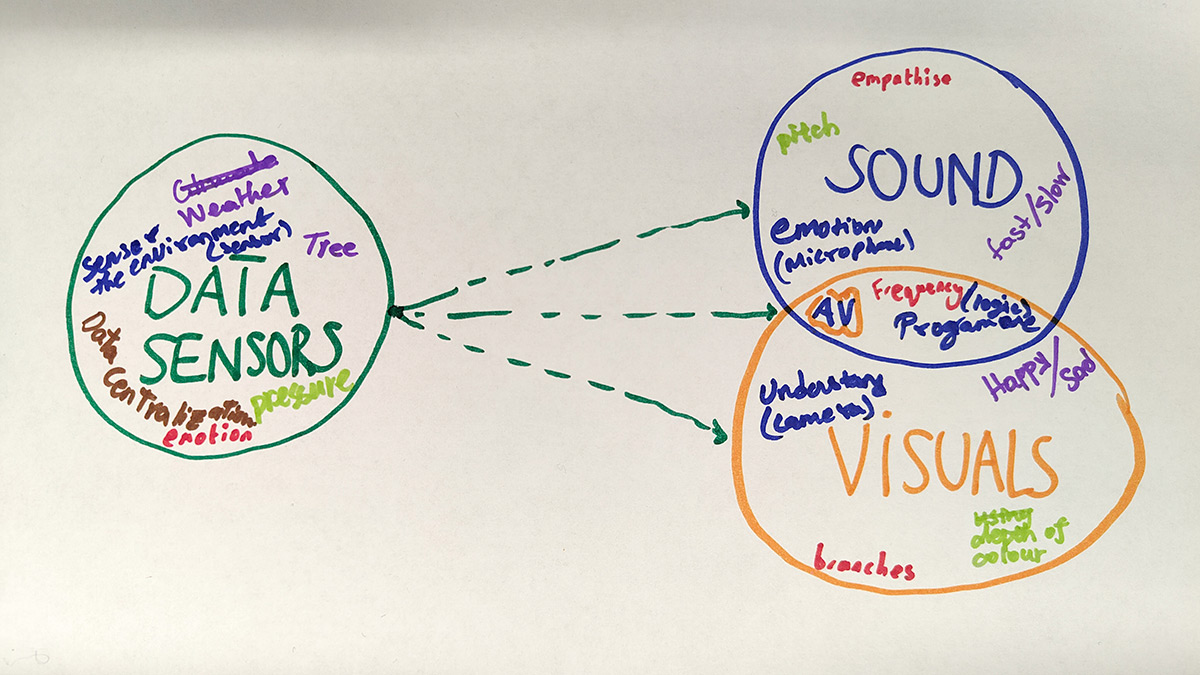 Weather
Sense
the environment
(sensor)
Tree
DATA
SENSORS
Data
Centralization
pressure
emotion
empathise
pitch
SOUND
fast/slow
emotion
(Microphone)
AV
Frequency
(logic)
Programme
Understany
(camera)
Happy/sad
VISUALS
using
depth of
colour
branches